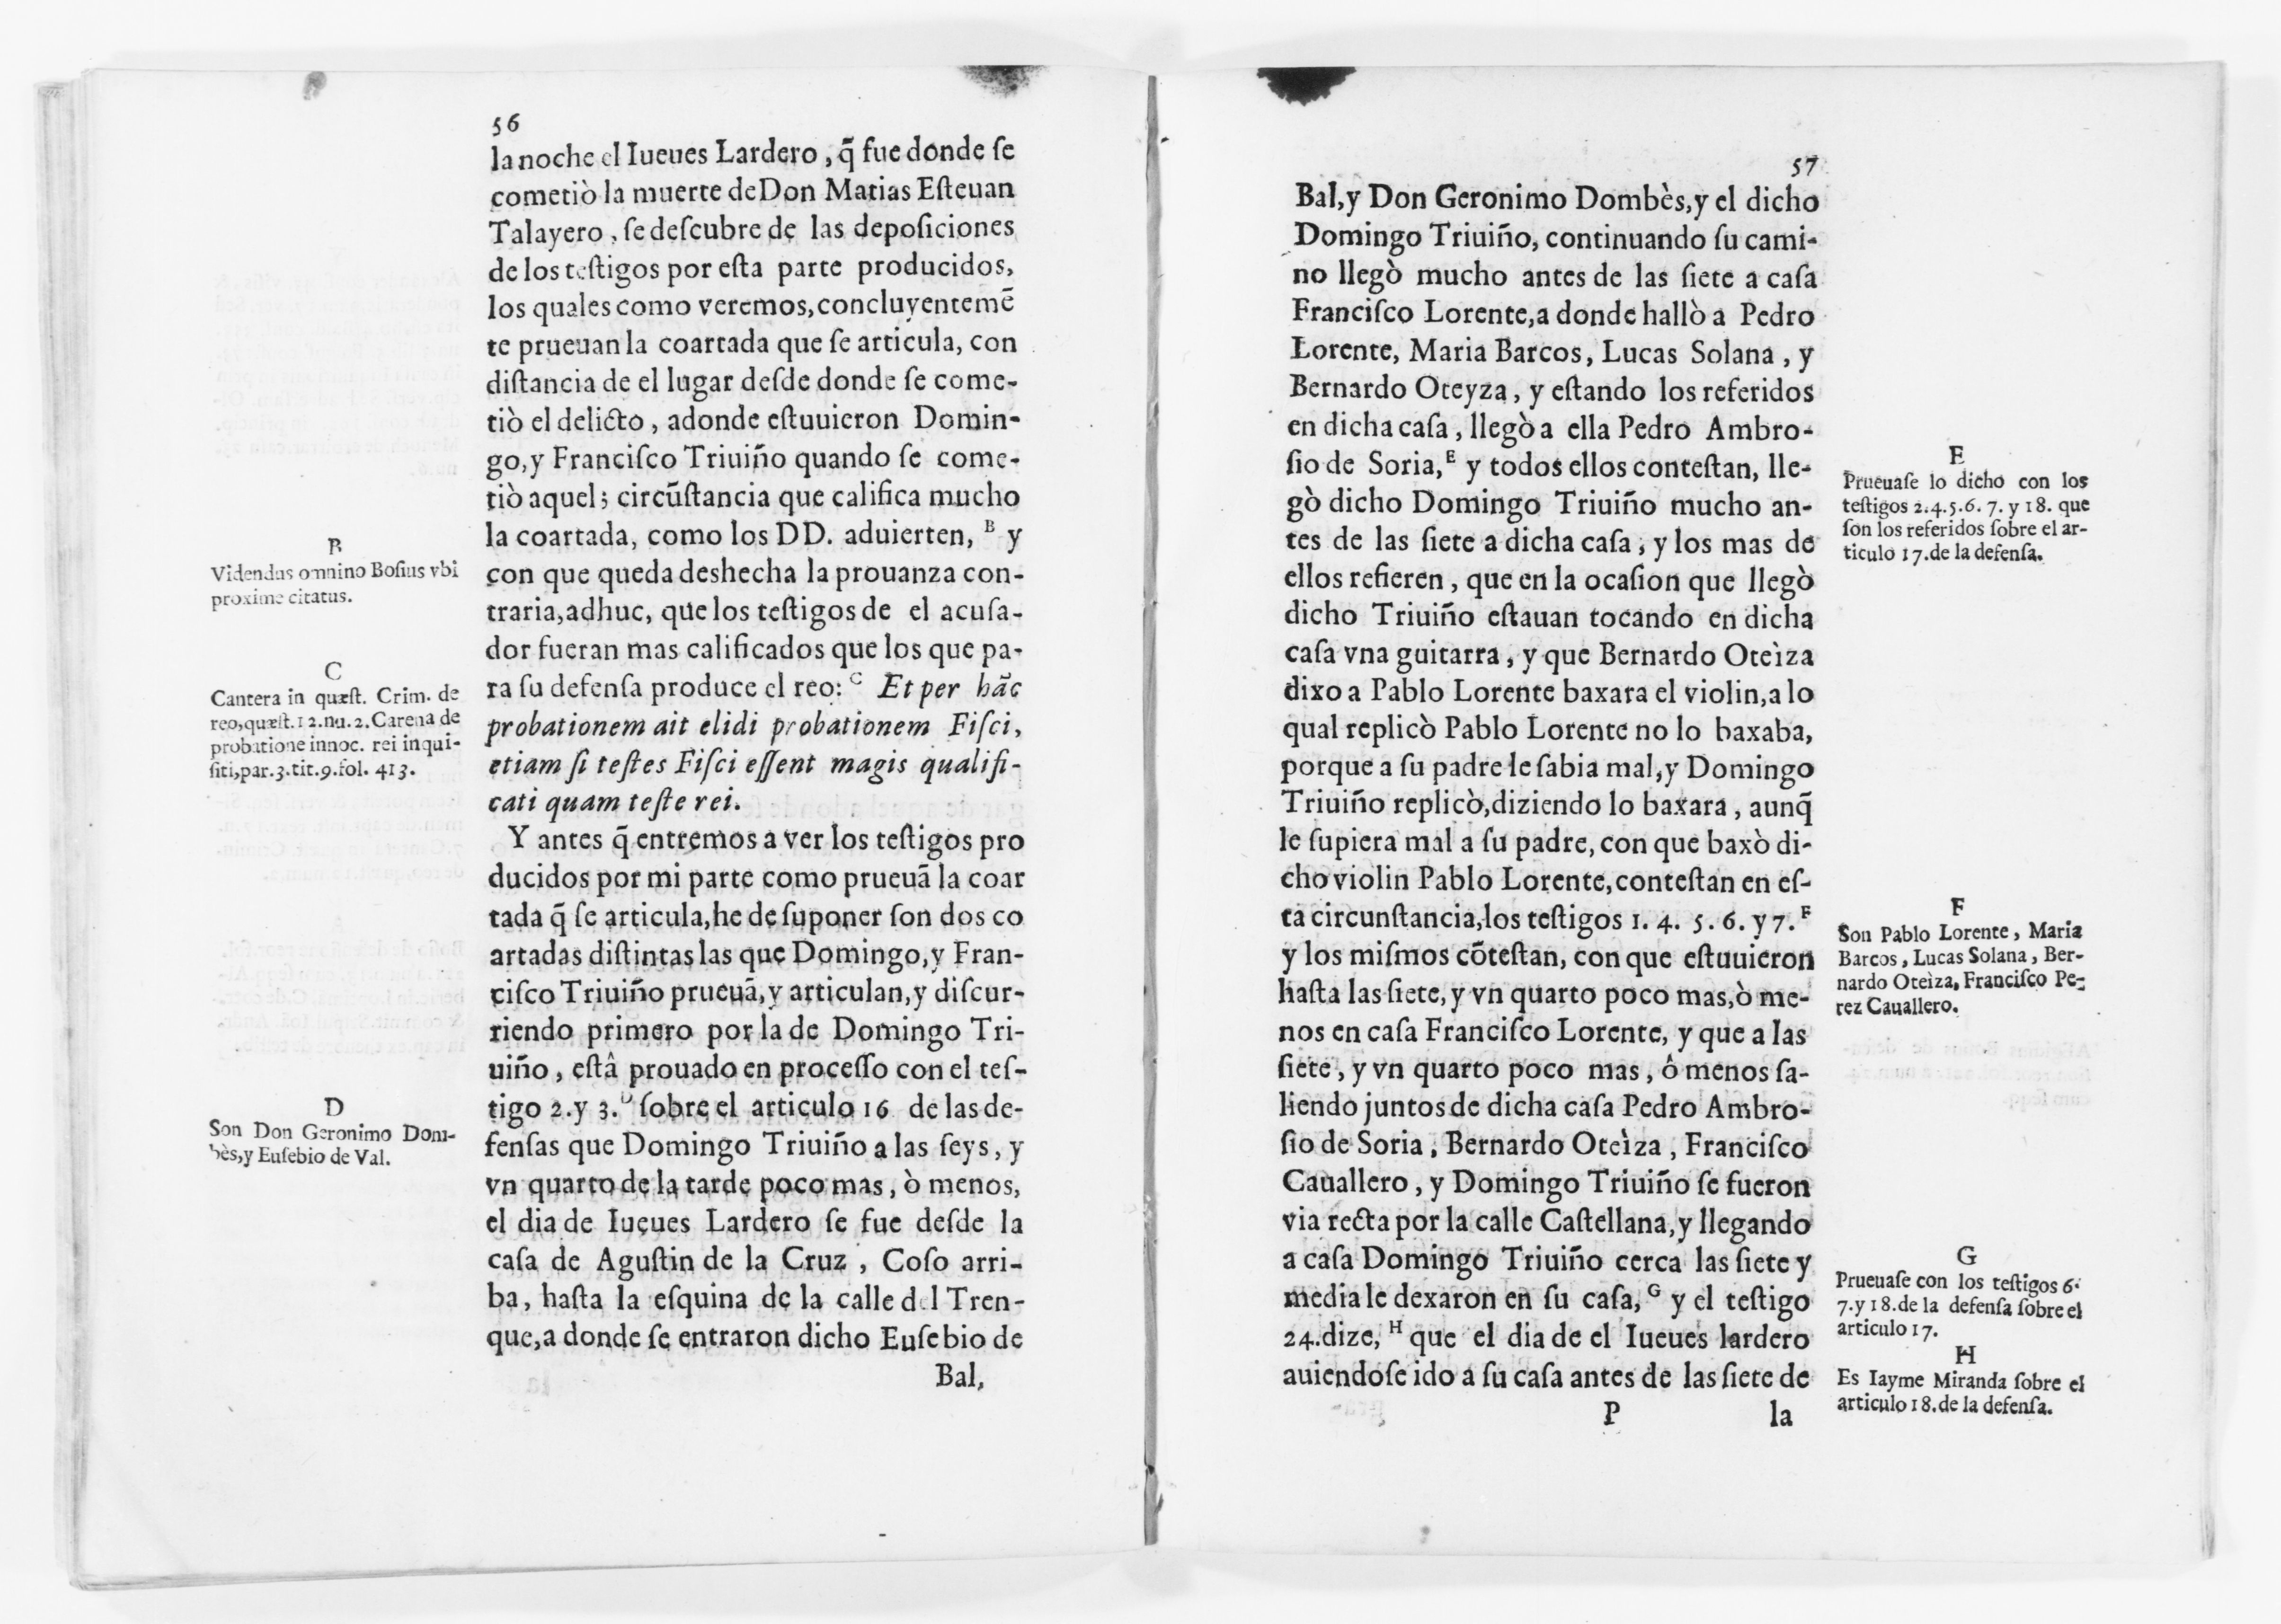 56
la noche el Iueues Lardero, q̃ fue donde ſe
cometiò la muerte de Don Matias Eſteuan
Talayero, ſe deſcubre de las depoſiciones
de los teſtigos por eſta parte producidos,
los quales como veremos, concluyentemẽ
te prueuan la coartada que ſe articula, con
diſtancia de el lugar deſde donde ſe come-
tiò el delicto, adonde eſtuuieron Domin-
go, y Franciſco Triuiño quando ſe come-
tiò aquel; circũſtancia que califica mucho
la coartada, como los DD. aduierten, B y
con que queda deshecha la prouanza con-
traria, adhuc, que los teſtigos de el acuſa-
dor fueran mas calificados que los que pa-
ra ſu defenſa produce el reo: C Et per hãc
probationem ait elidi probationem Fiſci,
etiam ſi teſtes Fiſci eſſent magis qualifi-
cati quam teſte rei.
Y antes q̃ entremos a ver los teſtigos pro
ducidos por mi parte como prueuã la coar
tada q̃ ſe articula, he de ſuponer ſon dos co
artadas diſtintas las que Domingo, y Fran-
ciſco Triuiño prueuã, y articulan, y diſcur-
riendo primero por la de Domingo Tri-
uiño, eſtâ prouado en proceſſo con el teſ-
tigo 2. y 3. D ſobre el articulo 16 de las de-
fenſas que Domingo Triuiño a las ſeys, y
vn quarto de la tarde poco mas, ò menos,
el dia de Iueues Lardero ſe fue deſde la
caſa de Aguſtin de la Cruz, Coſo arri-
ba, haſta la eſquina de la calle del Tren-
que, a donde ſe entraron dicho Euſebio de
Bal,
B
Videndus omnino Boſius vbi
proxime citatus.
C
Cantera in quæſt. Crim. de
reo, quæſt. 12. nu. 2. Carena de
probatione innoc. rei inqui-
ſiti, par. 3. tit. 9. fol. 413.
D
Son Don Geronimo Dom-
bès, y Euſebio de Val.
57
Bal, y Don Geronimo Dombès, y el dicho
Domingo Triuiño, continuando ſu cami-
no llegò mucho antes de las ſiete a caſa
Franciſco Lorente, a donde hallò a Pedro
Lorente, Maria Barcos, Lucas Solana, y
Bernardo Oteyza, y eſtando los referidos
en dicha caſa, llegò a ella Pedro Ambro-
ſio de Soria, E y todos ellos conteſtan, lle-
gò dicho Domingo Triuiño mucho an-
tes de las ſiete a dicha caſa, y los mas de
ellos refieren, que en la ocaſion que llegò
dicho Triuiño eſtauan tocando en dicha
caſa vna guitarra, y que Bernardo Oteìza
dixo a Pablo Lorente baxara el violin, a lo
qual replicò Pablo Lorente no lo baxaba,
porque a ſu padre le ſabia mal, y Domingo
Triuiño replicò, diziendo lo baxara, aunq̃
le ſupiera mal a ſu padre, con que baxò di-
cho violin Pablo Lorente, conteſtan en eſ-
ta circunſtancia, los teſtigos 1. 4. 5. 6. y 7. F
y los miſmos cõteſtan, con que eſtuuieron
haſta las ſiete, y vn quarto poco mas, ò me-
nos en caſa Franciſco Lorente, y que a las
ſiete, y vn quarto poco mas, ô menos ſa-
liendo juntos de dicha caſa Pedro Ambro-
ſio de Soria, Bernardo Oteìza, Franciſco
Cauallero, y Domingo Triuiño ſe fueron
via recta por la calle Caſtellana, y llegando
a caſa Domingo Triuiño cerca las ſiete y
media le dexaron en ſu caſa, G y el teſtigo
24. dize, H que el dia de el Iueues lardero
auiendoſe ido a ſu caſa antes de las ſiete de
P la
E
Prueuaſe lo dicho con los
teſtigos 2. 4. 5. 6. 7. y 18. que
ſon los referidos ſobre el ar-
ticulo 17. de la defenſa.
F
Son Pablo Lorente, Maria
Barcos, Lucas Solana, Ber-
nardo Oteìza, Franciſco Pe-
rez Cauallero.
G
Prueuaſe con los teſtigos 6.
7. y 18. de la defenſa ſobre el
articulo 17.
H
Es Iayme Miranda ſobre el
articulo 18. de la defenſa.